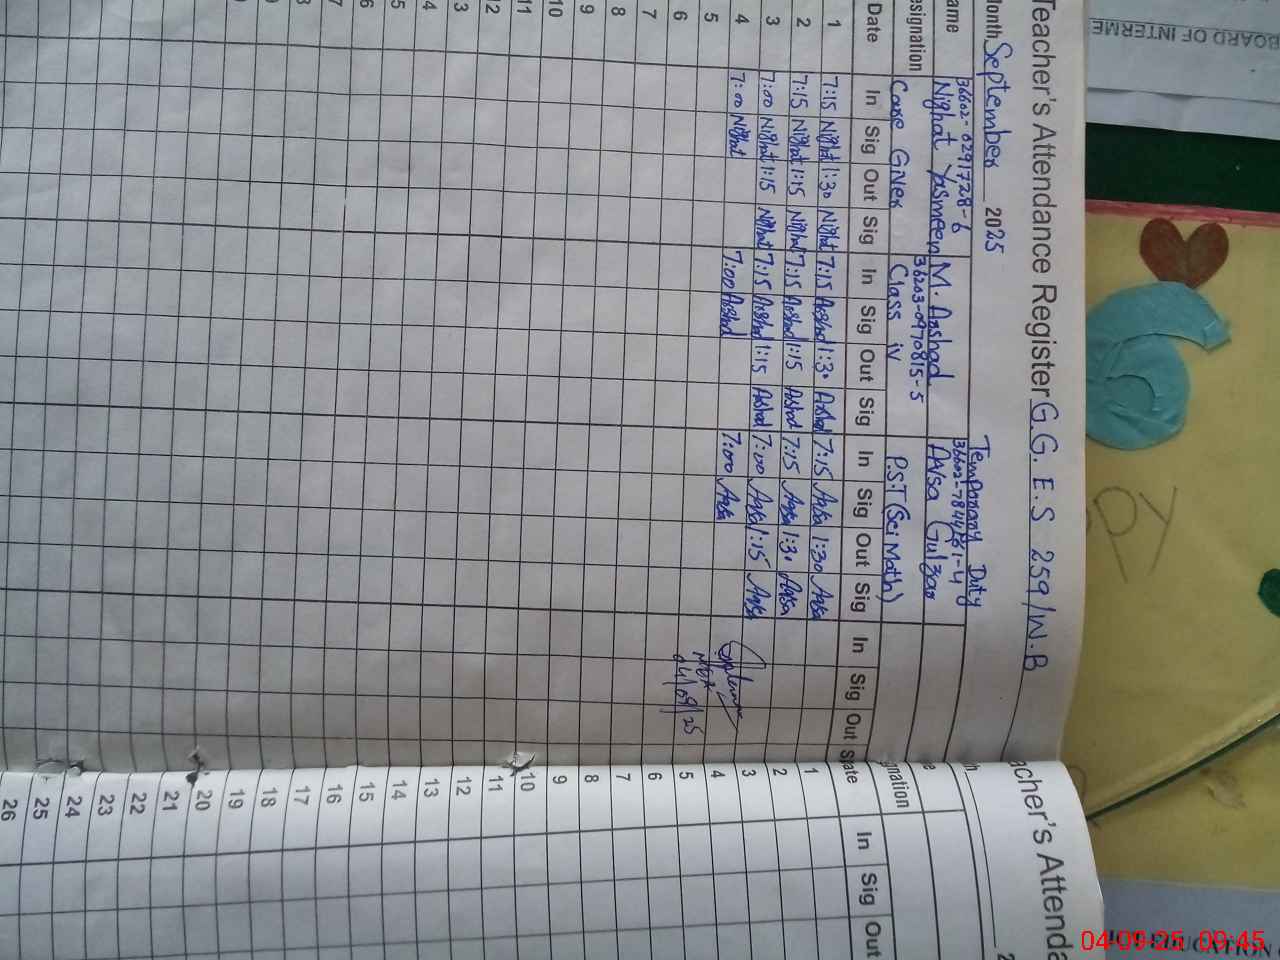 BOARD OF INTERME
Teacher's Attendance Register G.G.E.S 259/W.B
Month September 2025
Temporary Duty
36602-0291728-6
Name Nighat Yasmeen M. Arshad Aqsa Gulzar
36203-0970815-5
Designation Care Giver Class iv P.S.T (Sci Math)
Date In Sig Out Sig In Sig Out Sig In Sig Out Sig In Sig Out S
1 7:15 Nighat 1:30 Nighat 7:15 Arshad 1:30 Arshad 7:15 Aqsa 1:30 Aqsa
2 7:15 Nighat 1:15 Nighat 7:15 Arshad 1:15 Arshad 7:15 Aqsa 1:30 Aqsa
3 7:00 Nighat 1:15 Nighat 7:15 Arshad 1:15 Arshad 7:00 Aqsa 1:15 Aqsa
4 7:00 Nighat 7:00 Arshad 7:00 Aqsa
5
04/09/25
6
7
8
9
10
11
12
13
14
15
16
17
18
Teacher's Attenda
Date In Sig Out
1
2
3
4
5
6
7
8
9
10
11
12
13
14
15
16
17
18
19
20
21
22
23
24
25
26
PY
04-09-25 09:45